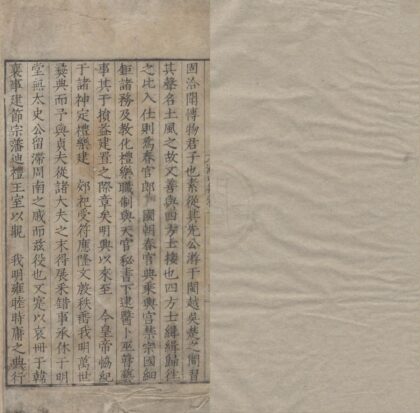 固洽聞博物君子也素從其先公遊于閩越吳楚之間習
其聲名土風之故又善與四方士接也四方士緝緝歸往
之比入仕則為春官郎 國朝春官典乘輿官禁宗國細
鉅諸務及教化禮樂職制與天官秘書下逮醫卜巫聲藝
事其于搶益建置之際章矣明興以來至 今皇帝暢紀
于諸神定禮樂建 郊祀受符應隆文敦秩番我明萬世
彝典而予與貞夫後諸大夫之末得展采錯事承休于明
堂無太史公留滯周南之戚而茲役也又寔以哀冊于韓
襄事建節宗藩迪禮王室以觀 我明雍睦時庸之典行